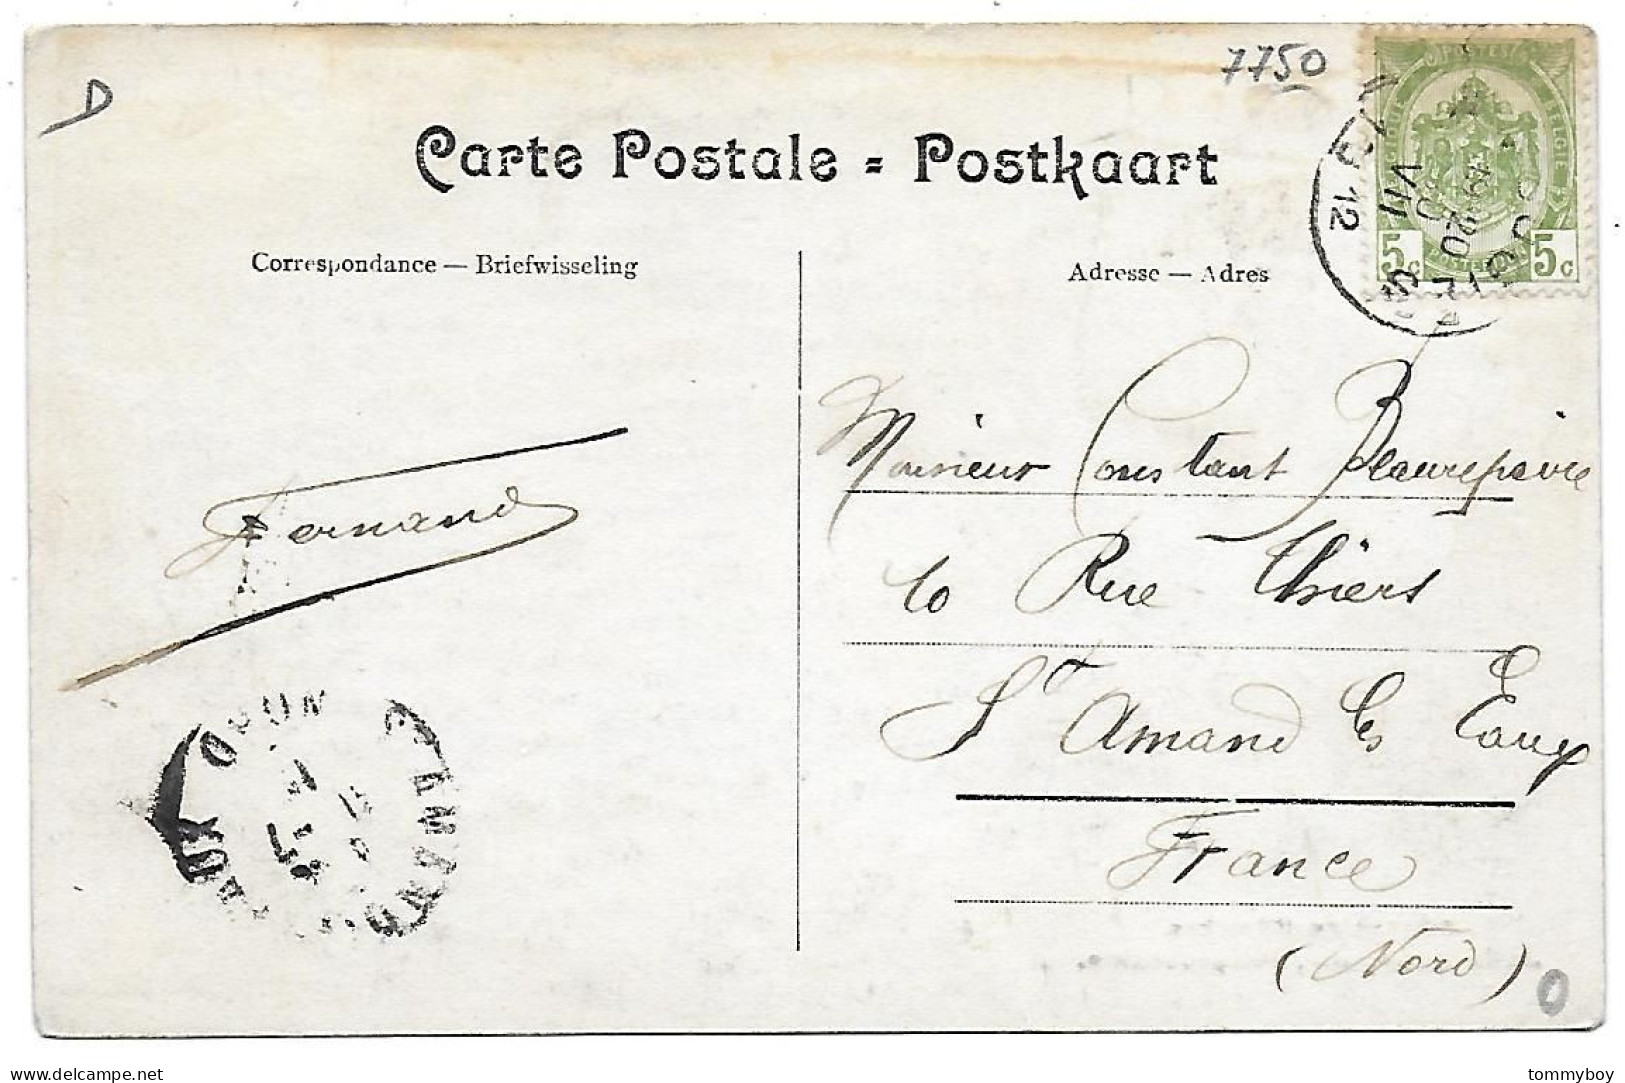 7750
D
Carte Postale = Postkaart
POSTES
BELGIE
5c 5c
12
VII
Correspondance — Briefwisseling
Adresse — Adres
Monsieur Constant Beaurepaire
10 Rue Thiers
St Amand les Eaux
France
(Nord)
Fernand
NORD
AMAND
EAUX
0
delcampe.net
tommyboy